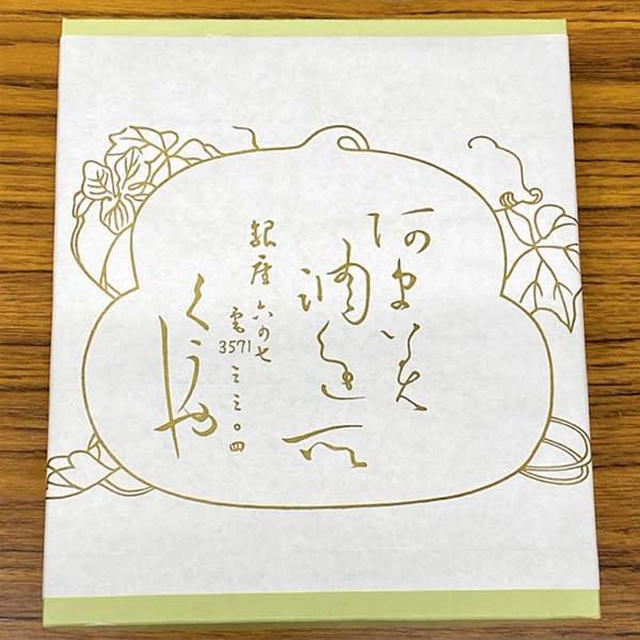 調進所
銀座六の七
電3571三三〇四
くうや